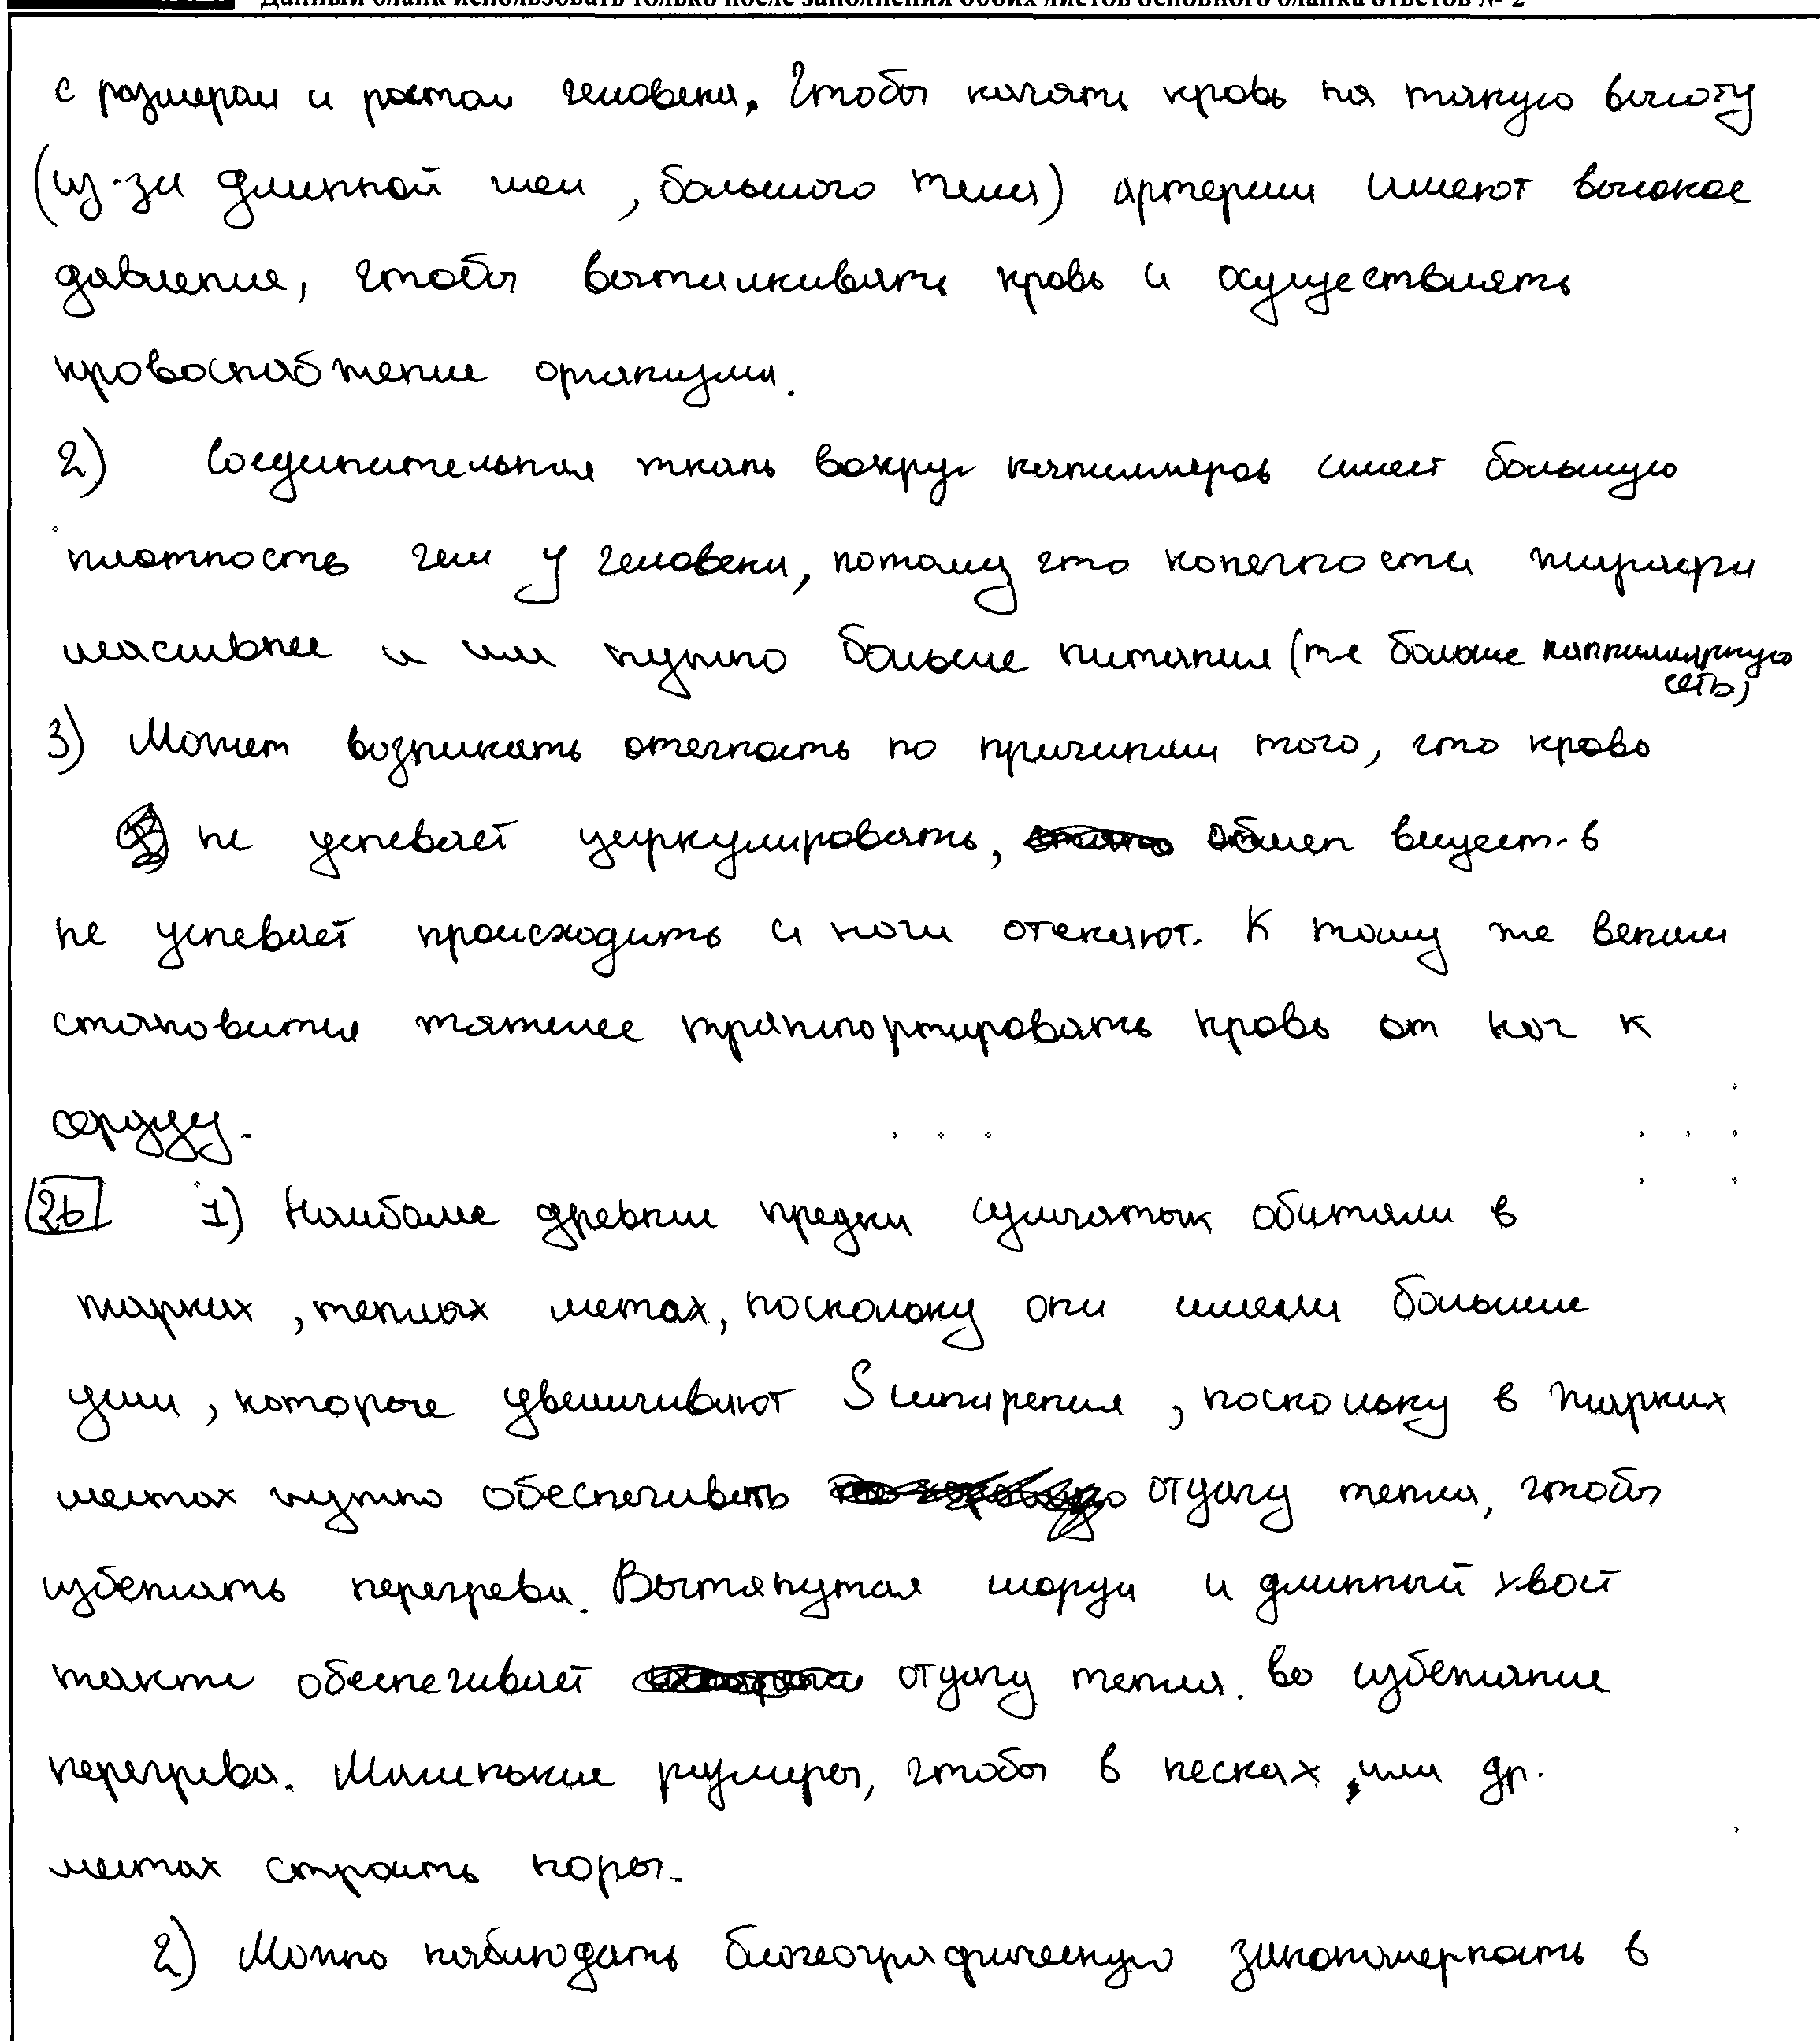 Данный бланк использовать только после заполнения обоих листов основного бланка ответов № 2
с размерам и ростом человека. Чтобы качать кровь на такую высоту
(из-за длинной шеи, большого тела) артерии имеют высокое
давление, чтобы выталкивать кровь и осуществлять
кровоснабжение организма.
2) Соединительная ткань вокруг капилляров имеет большую
плотность чем у человека, потому что конечности жирафа
масивнее и им нужно больше питания (т-е больше каппиллярную
сеть)
3) Может возникать отечность по причинам того, что кровь
не успевает циркулировать, обмен вещест-в
не успевает происходить и ноги отекают. К тому же венам
становится тяжелее транспортировать кровь от ног к
сердцу.
26 1) Наиболее древние предки сумчатых обитали в
жарких, теплых местах, поскольку они имели большие
уши, которые увеличивают S испарения, поскольку в жарких
местах нужно обеспечивать отдачу тепла, чтобы
избежать перегрева. Вытянутая морда и длинный хвост
также обеспечивает отдачу тепла. во избежание
перегрева. Маленькие размеры, чтобы в песках, или др.
местах строить норы.
2) Можно наблюдать биогеографическую закономерность в